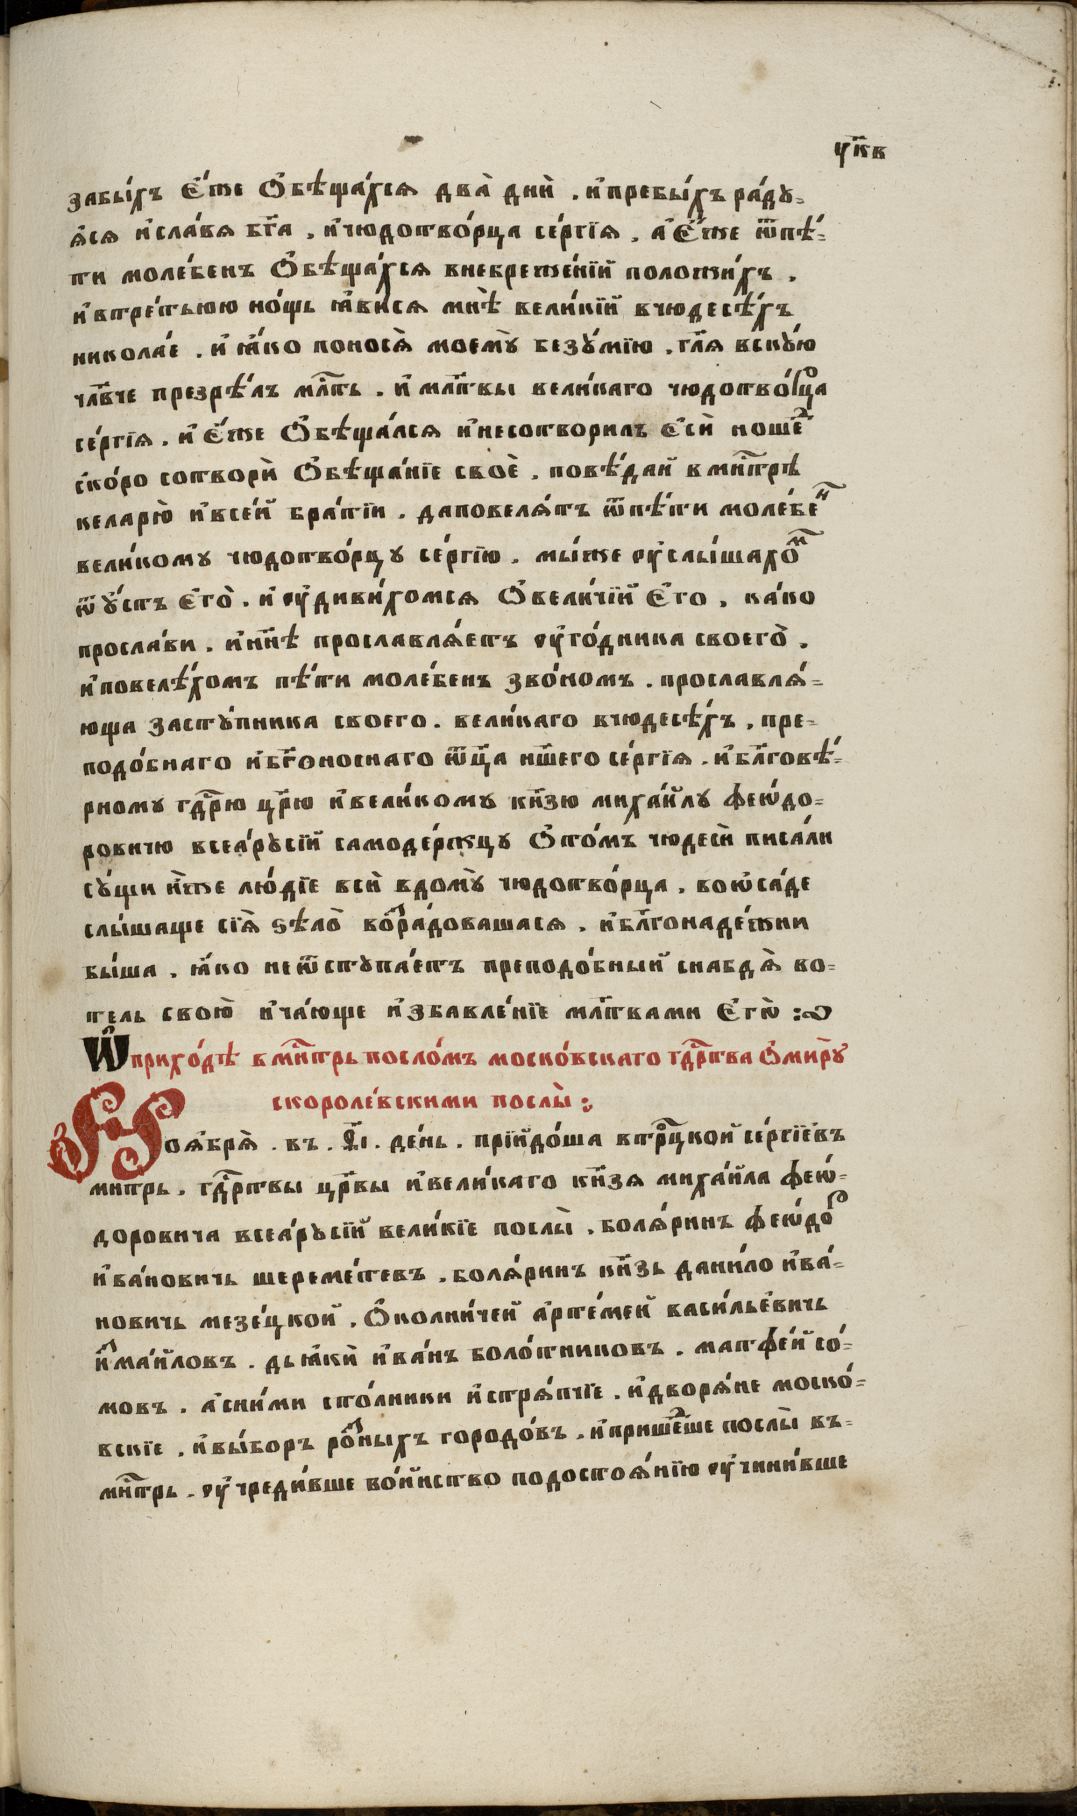 у҃кв
забы́хъ є҆́же ѻ҆бѣща́хсѧ два̀ днѝ . и҆пребы́хъ ра́дꙋ-
ѧ҆сѧ и҆сла́вѧ бг҃а , и҆чюдотво́рца се́ргїѧ , а҆є҆́же ѿпѣ́-
ти моле́бенъ ѻ҆бѣща́хсѧ внебреже́нїй положи́хъ .
и҆втре́тьюю но́щь ꙗ҆ви́сѧ мнѣ̀ вели́кїй вчюдесѣ́хъ
никола́е . и҆ ꙗ҆́ко поносѧ̀ моемꙋ̀ безꙋ́мїю , гл҃ѧ вскꙋ́ю
чл҃вче презрѣ́лъ мл҃ть . и҆ мл҃твы вели́каго чюдотво́рца
се́ргїѧ . и҆ є҆́же ѻ҆бѣща́лсѧ и҆несотворилъ є҆сѝ ноще́
ско́ро сотворѝ ѻ҆бѣща́нїе своѐ , повѣ́дай вмн҃трѣ
келарю̀ и҆все́й бра́тїи . даповелѧ́тъ ѿпѣ́ти моле́бен
вели́комꙋ чюдотво́рцꙋ се́ргїю . мы́же ѹ҆слы́шахом
ѿꙋ҆́стъ є҆гѡ̀ . и҆ ѹ҆диви́хомсѧ ѻ҆вели́чїй є҆го , ка́ко
просла́ви . и҆нн҃ѣ прославлѧ́етъ ѹ҆го́дника своего̀ .
и҆повелѣ́хомъ пѣ́ти моле́бенъ зво́номъ . прославлѧ́-
юща застꙋ́пника своего . вели́каго вчюдесѣ́хъ , пре-
подо́бнаго и҆бг҃оноснаго ѿц҃а нш҃его се́ргїѧ . и҆бл҃говѣ́-
рному гдⷭ҇рю цр҃ю и҆вели́комꙋ кн҃зю миха́йлу феѡ́до-
ровичю всеа́рꙋсїй самоде́ржцу ѻ҆то́мъ чюдесѝ писа́ли
сꙋ́щи и҆́же лю́дїе всѝ вдомꙋ̀ чюдотво́рца , воѡ҆са́де
слы́шаще сїѧ̀ ѕѣло̀ возра́довашасѧ . и҆бл҃гонаде́жни
бы́ша . ꙗ҆́ко неѿступа́етъ преподо́бный снабдѧ̀ во-
тель свою̀ и҆ча́юще и҆збавле́нїе мл҃твами є҆гѡ̀ :~
Ѡ҆прихо́дѣ вмн҃трь посло́мъ моско́вскаго гдⷭ҇рства ѻ҆ми́рꙋ
скороле́вскими послы̀ :
Ноѧ҆брѧ̀ . въ . а҃і . де́нь . прїйдо́ша втро́цкой се́ргїевъ
мн҃трь . гдⷭ҇рствы цр҃вы и҆вели́каго кн҃зѧ миха́йла феѡ́-
доровича всеа́рꙋсїй вели́кїе послы̀ . болѧ́ринъ феѡ́дор
и҆ва́новичь шереме́тевъ . болѧ́ринъ кн҃зь дани́ло и҆ва́-
новичь мезе́цкой . ѻ҆колни́чей а҆рте́мей васи́льевичь
и҆зма́йловъ . дьꙗ҆кѝ и҆ва́нъ боло́тниковъ . матфе́й со́-
мовъ . а҆сни́ми сто́лники и҆стрѧ́пчїе . и҆дворѧ́не моско́-
вскїе . и҆вы́боръ розныхъ городо́въ . и҆прише́дше послы̀ въ-
мн҃трь . ѹ҆чреди́вше во́йнство подостоѧ́нїю ѹ҆чини́вше